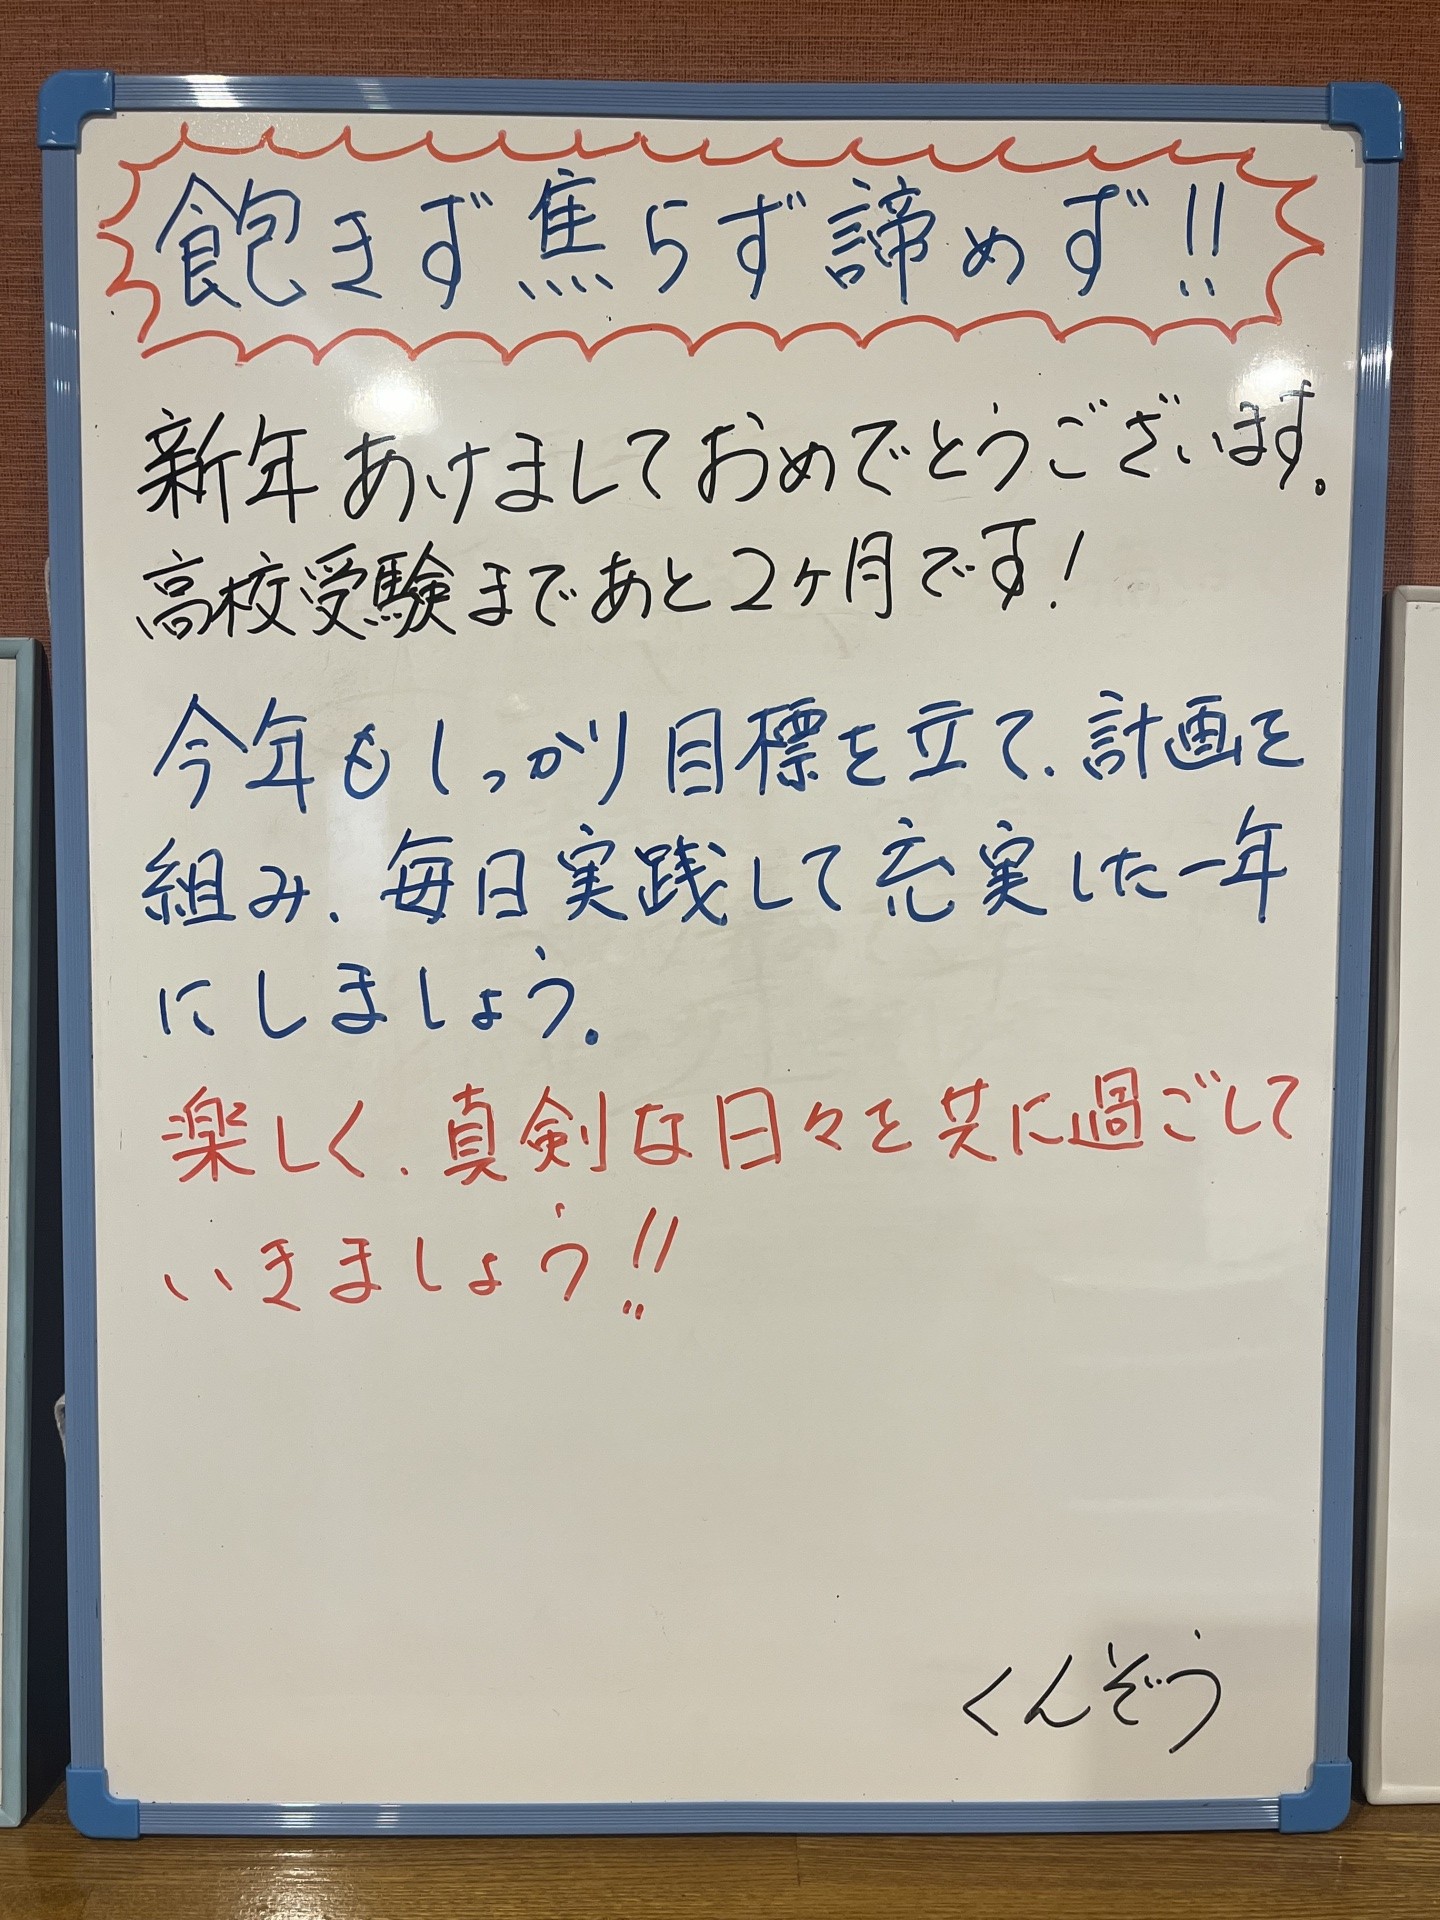 飽きず焦らず諦めず!!
新年あけましておめでとうございます。
高校受験まであと2ヶ月です!
今年もしっかり目標を立て、計画を
組み、毎日実践して充実した一年
にしましょう。
楽しく、真剣な日々を共に過ごして
いきましょう!!
くんぞう